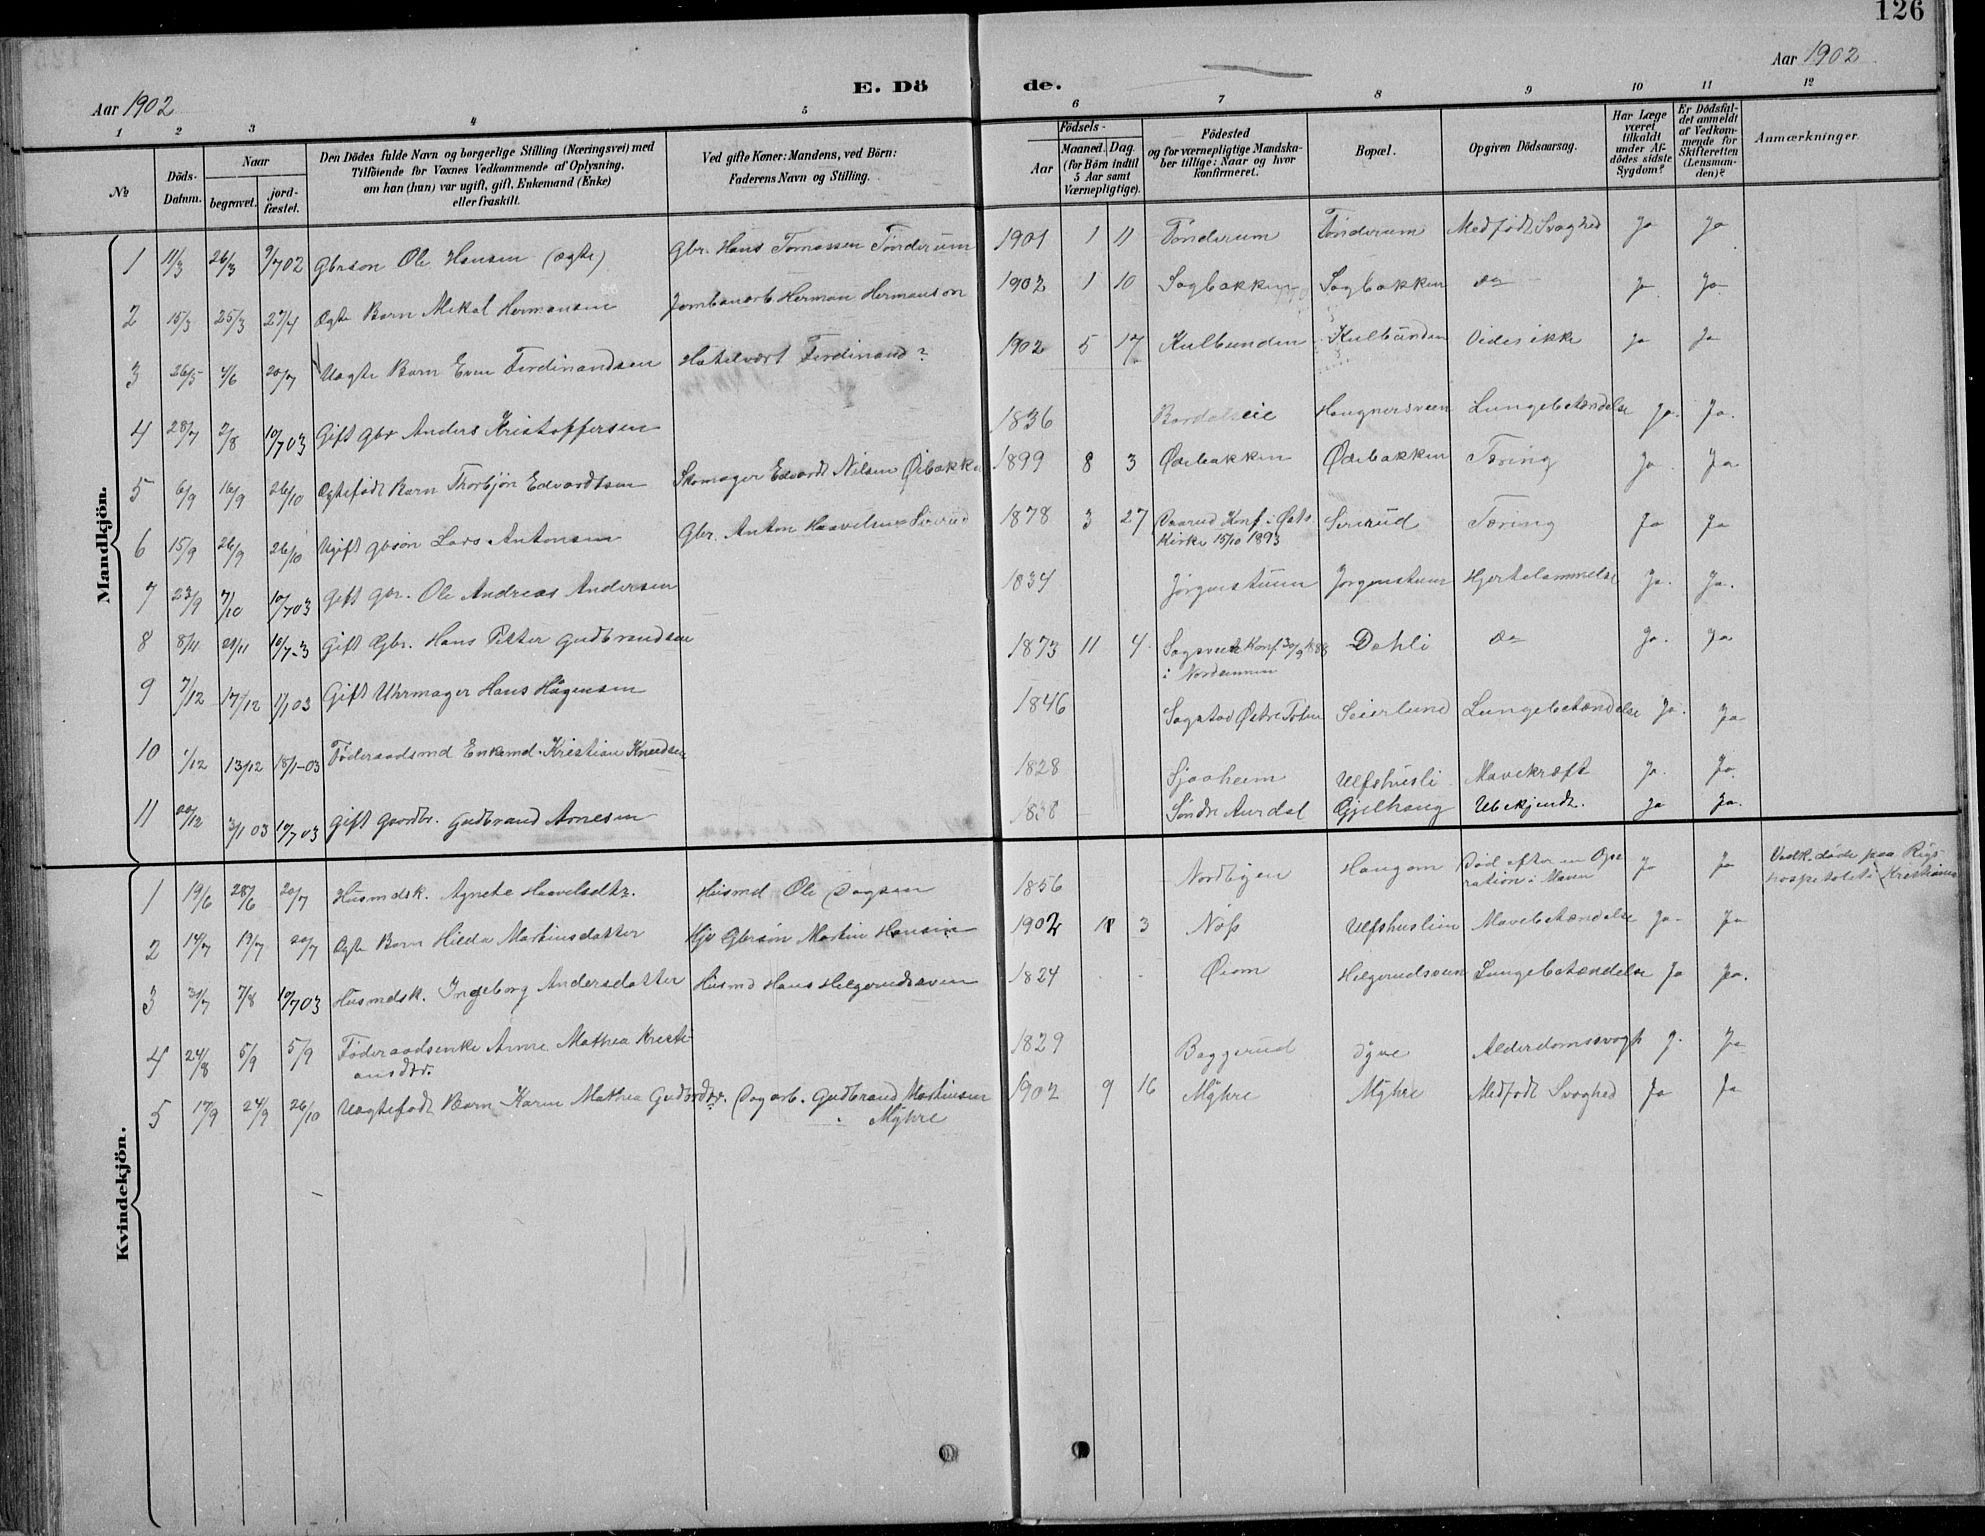 126
Aar 1902
E. Dö de.
Aar 1902
1 2 3 4 5 6 7 8 9 10 11 12
No
Döds-Datum.
Naar
begravet.
jord-fæstet.
Den Dödes fulde Navn og borgerlige Stilling (Næringsvei) med
Tilföiende for Voxnes Vedkommende af Oplysning,
om han (hun) var ugift, gift, Enkemand (Enke)
eller fraskilt.
Ved gifte Koner: Mandens, ved Börn:
Faderens Navn og Stilling.
Födsels-
Aar
Maaned. Dag.
(for Börn indtil
5 Aar samt
Værnepligtige).
Födested
og for værnepligtige Mandska-
ber tillige: Naar og hvor
konfirmeret.
Bopæl.
Opgiven Dödsaarsag.
Har Læge
været
tilkaldt
under Af-
dödes sidste
Sygdom?
Er Dödsfal-
det anmeldt
af Vedkom-
mende for
Skifteretten
(Lensman-
den)?
Anmærkninger.
Mandkjön.
1 11/3 26/3 9/7 02 Gbrsøn Ole Hansen (ægte) Gbr. Hans Tomassen Tönderum 1901 1 11 Tönderum Tönderum Medfødt Svaghed Ja Ja
2 15/3 25/3 27/4 Ægte Barn Mikal Hermansen Jernbanarb Herman Hermanson 1902 1 10 Sagbakken Sagbakken do Ja Ja
3 26/5 4/6 20/7 Uægte Barn Even Ferdinandsen Hotelvært Ferdinand? 1902 5 17 Kulbunden Kulbunden Vides ikke Ja Ja
4 28/7 2/8 10/7 03 Gift Gbr Anders Kristoffersen 1836 Bordalseie Haugnersveen Lungebetændelse Ja. Ja.
5 6/9 16/9 26/10 Ægtefødt Barn Thorbjørn Edvardsen Skomager Edvardt Nilsen Øibakken 1899 8 3 Ødebakken Ødebakken Tæring Ja Ja
6 15/9 26/9 26/10 Ugift gbsøn Lars Antonsen Gbr. Anton Haavelsen Sirerud 1878 3 27 Daarud Konf. i Østs.
Kirke 15/10 1893 Sirerud Tæring Ja Ja
7 23/9 7/10 10/7 03 Gift gbr. Ole Andreas Andersen 1834 Jørgenstuen Jørgenstuen Hjertelammelse Ja. Ja.
8 8/11 21/11 10/7-3 Gift Gbr. Hans Petter Gudbrandsen 1873 11 4 Sagsveen Konf 30/9 1888
i Nordsinnen Dahli do Ja. Ja
9 7/12 17/12 1/1 03 Gift Uhrmager Hans Hågensen 1846 Sagstad Østre Toten Seierlund Lungebetændelse Ja. Ja
10 1/12 13/12 18/1-03 Föderaadsmd Enkemd. Kristian Knudsen 1828 Sjaaheim Ulfshusli Mavekræft Ja. Ja.
11 20/12 3/1 03 10/7 03 Gift Gaardbr. Gudbrand Arnesen 1838 Søndre Aurdal Gjelhaug Ubekjendt. Ja Ja.
Kvindekjön.
1 19/6 28/6 20/7 Husmdsk. Agnete Haavelsdtr. Husmd Ole Dagsen 1856 Nordlijen Haugom Død efter en Ope-
ration i Maven Ja Ja Vedk. døde paa Rigs-
hospitalet i Kristiania
2 14/7 19/7 20/7 Ægte Barn Hilda Martinsdatter Hjv Gbrsön Martin Hansen 1902 1 3 Nøss Ulfshuslien Mavebetændelse Ja Ja
3 31/7 7/8 10/7 03 Husmdsk. Ingeborg Andersdatter Husmd Hans Helgerudsveen 1824 Øiom Helgerudsveen Lungebetændelse Ja Ja.
4 24/8 5/9 5/9 Föderaadsenke Anne Mathea Kristi-
ansdtr. 1829 Baggerud Dyne Alderdomssvagh J. Ja
5 17/9 24/9 26/10 Uægtefødt Barn Karen Mathea Gudbrdtr. Dagarb. Gudbrand Martinsen
Myhre 1902 9 16 Myhre Myhre Medfødt Svaghed Ja Ja